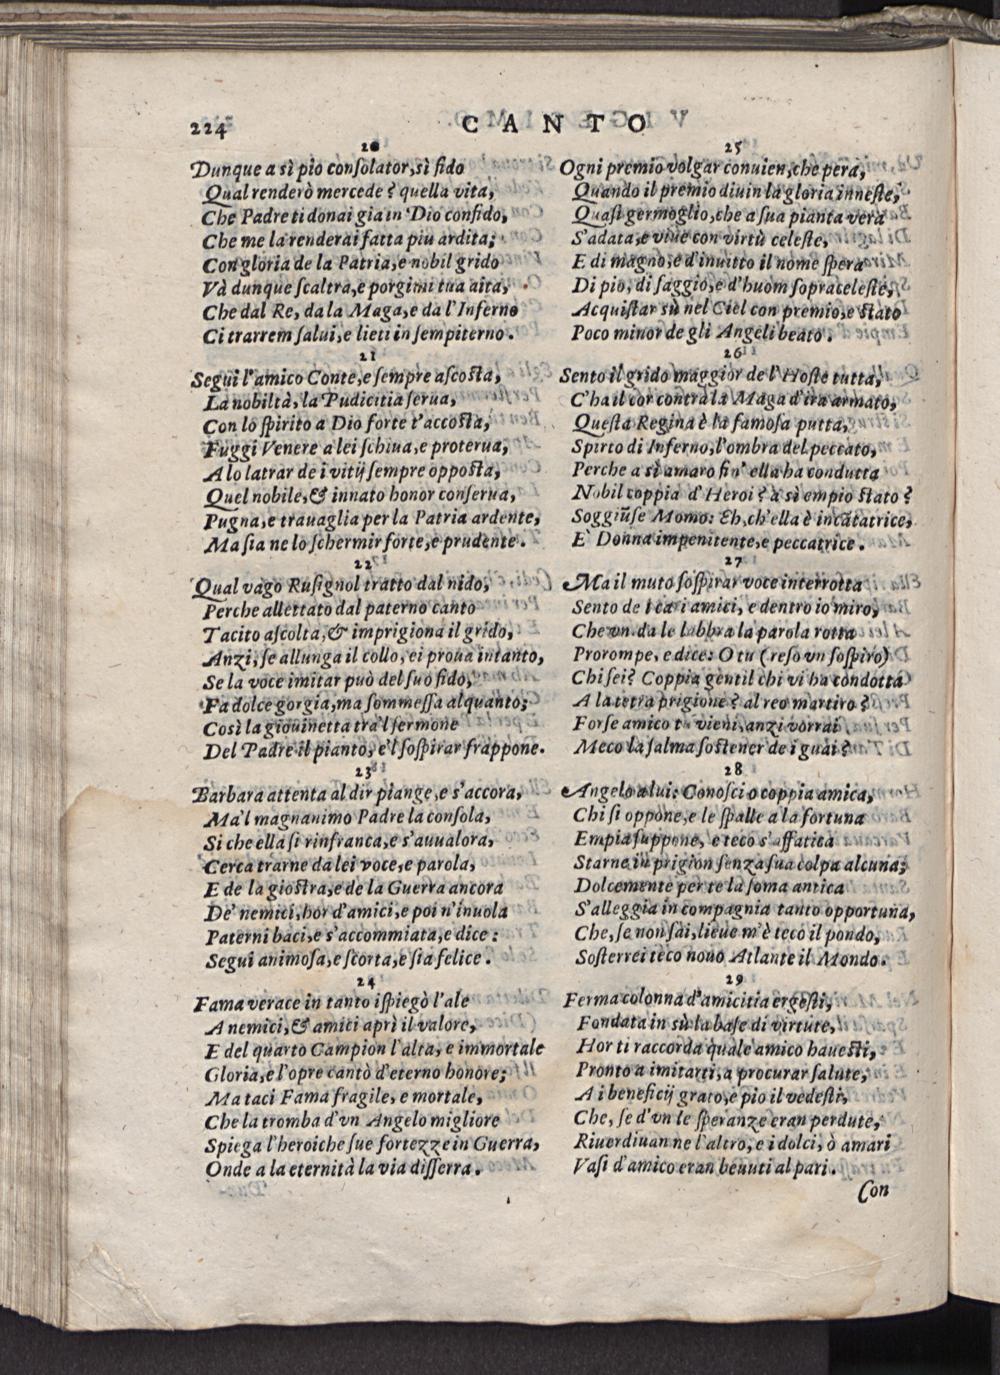 224
CANTO
20
Dunque a sì pio conſolator, sì fido
Qual renderò mercede? quella vita,
Che Padre ti donai gia in Dio confido,
Che me la renderai fatta piu ardita;
Con gloria de la Patria, e nobil grido
Và dunque ſcaltra, e porgimi tua aita,
Che dal Re, da la Maga, e da l'Inferno
Ci trarrem ſalui, e lieti in ſempiterno.
21
Segui l'amico Conte, e ſempre aſcoſta,
La nobiltà, la Pudicitia ſerua,
Con lo ſpirito a Dio forte t'accoſta,
Fuggi Venere a lei ſchiua, e proterua,
A lo latrar de i vitij ſempre oppoſta,
Quel nobile, & innato honor conſerua,
Pugna, e trauaglia per la Patria ardente,
Ma ſia ne lo ſchermir forte, e prudente.
22
Qual vago Ruſignol tratto dal nido,
Perche allettato dal paterno canto
Tacito aſcolta, & imprigiona il grido,
Anzi, ſe allunga il collo, ei proua intanto,
Se la voce imitar può del ſuo fido,
Fa dolce gorgia, ma ſommeſſa alquanto;
Così la giouinetta tra'l ſermone
Del Padre il pianto, e'l ſoſpirar frappone.
23
Barbara attenta al dir piange, e s'accora,
Ma'l magnanimo Padre la conſola,
Si che ella ſi rinfranca, e s'auualora,
Cerca trarne da lei voce, e parola,
E de la gioſtra, e de la Guerra ancora
De' nemici, hor d'amici, e poi n'inuola
Paterni baci, e s'accommiata, e dice:
Segui animoſa, e ſcorta, e ſia felice.
24
Fama verace in tanto iſpiegò l'ale
A nemici, & amici aprì il valore,
E del quarto Campion l'alta, e immortale
Gloria, e l'opre cantò d'eterno honore;
Ma taci Fama fragile, e mortale,
Che la tromba d'vn Angelo migliore
Spiega l'heroiche ſue fortezze in Guerra,
Onde a la eternità la via diſſerra.
25
Ogni premio volgar conuien, che pera,
Quando il premio diuin la gloria inneſte,
Quaſi germoglio, che a ſua pianta vera
S'adata, e viue con virtù celeſte,
E di magno, e d'inuitto il nome ſpera
Di pio, di ſaggio, e d'huom ſopraceleſte,
Acquiſtar sù nel Ciel con premio, e ſtato
Poco minor de gli Angeli beato.
26
Sento il grido maggior de l'Hoſte tutta,
C'ha il cor contra la Maga d'ira armato,
Queſta Regina è la famoſa putta,
Spirto di Inferno, l'ombra del peccato,
Perche a sì amaro fin' ella ha condutta
Nobil coppia d'Heroi? à sì empio ſtato?
Soggiũſe Momo: Eh, ch'ella è incãtatrice,
E Donna impenitente, e peccatrice.
27
Ma il muto ſoſpirar voce interrotta
Sento de i cari amici, e dentro io miro,
Che vn da le labbra la parola rotta
Prorompe, e dice: O tu (reſo vn ſoſpiro)
Chi ſei? Coppia gentil chi vi ha condotta
A la tetra prigione? al reo martiro?
Forſe amico tu vieni, anzi vorrai
Meco la ſalma ſoſtener de i guai?
28
Angelo a lui: Conoſci o coppia amica,
Chi ſi oppone, e le ſpalle a la fortuna
Empia ſuppone, e teco s'affatica
Starne in prigion ſenza ſua colpa alcuna;
Dolcemente per te la ſoma antica
S'alleggia in compagnia tanto opportuna,
Che, ſe non ſai, lieue m'è teco il pondo,
Soſterrei teco nouo Atlante il Mondo.
29
Ferma colonna d'amicitia ergeſti,
Fondata in sù la baſe di virtute,
Hor ti raccorda quale amico haueſti,
Pronto a imitarti, a procurar ſalute,
A i beneficij grato, e pio il vedeſti,
Che, ſe d'vn le ſperanze eran perdute,
Riuerdiuan ne l'altro, e i dolci, ò amari
Vaſi d'amico eran beuuti al pari.
Con